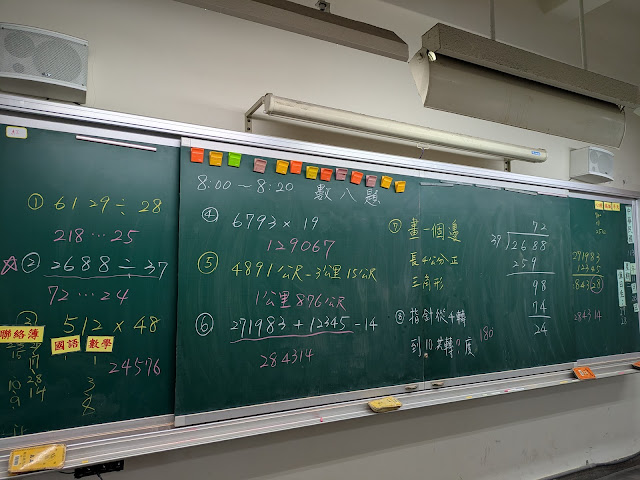 8:00～8:20 數八題
① 6129÷28
218…25
☆② 2688÷37
72…24
512×48
24576
聯絡簿
國語
數學
15
10 28
9 14
1
3
④ 6793×19
129067
⑤ 4891公尺-3公里15公尺
1公里876公尺
⑥ 271983+12345-14
284314
⑦ 畫一個邊
長4公分正
三角形
⑧ 指針從4轉
到10共轉?度
180
72
37 2688
259
98
74
24
271983
12345
84328
284314